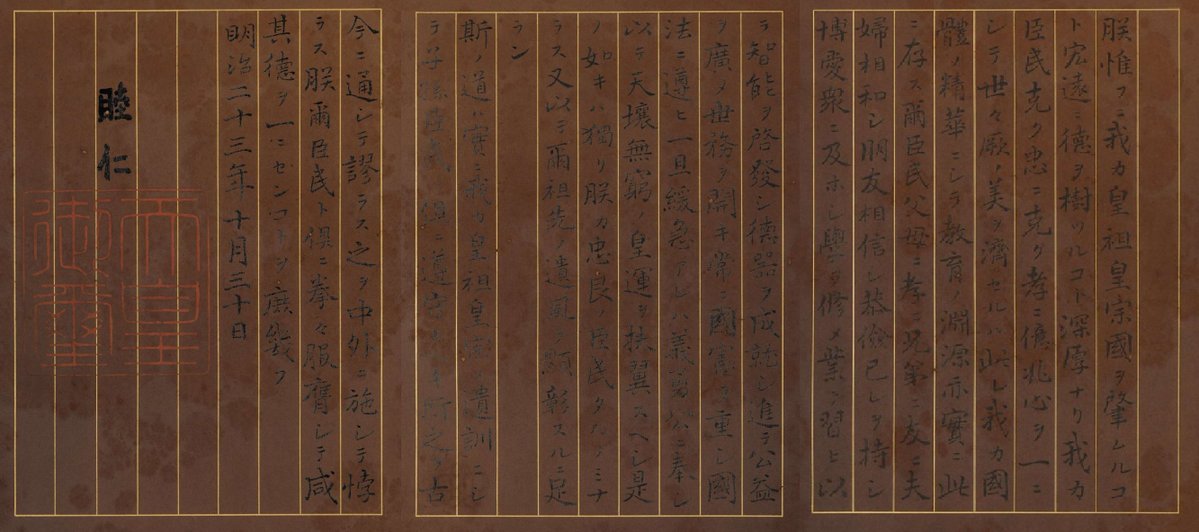 朕惟フニ我カ皇祖皇宗國ヲ肇ムルコ
ト宏遠ニ德ヲ樹ツルコト深厚ナリ我カ
臣民克ク忠ニ克ク孝ニ億兆心ヲ一ニ
シテ世々厥ノ美ヲ濟セルハ此レ我カ國
體ノ精華ニシテ教育ノ淵源亦實ニ此
ニ存ス爾臣民父母ニ孝ニ兄弟ニ友ニ夫
婦相和シ朋友相信シ恭儉己レヲ持シ
博愛衆ニ及ホシ學ヲ修メ業ヲ習ヒ以
テ智能ヲ啓發シ德器ヲ成就シ進テ公益
ヲ廣メ世務ヲ開キ常ニ國憲ヲ重シ國
法ニ遵ヒ一旦緩急アレハ義勇公ニ奉シ
以テ天壤無窮ノ皇運ヲ扶翼スヘシ是
ノ如キハ獨リ朕カ忠良ノ臣民タルノミナ
ラス又以テ爾祖先ノ遺風ヲ顯彰スルニ足
ラン
斯ノ道ハ實ニ我カ皇祖皇宗ノ遺訓ニシ
テ子孫臣民ノ俱ニ遵守スヘキ所之ヲ古
今ニ通シテ謬ラス之ヲ中外ニ施シテ悖
ラス朕爾臣民ト俱ニ拳々服膺シテ咸
其德ヲ一ニセンコトヲ庶幾フ
明治二十三年十月三十日
睦仁
天皇
御璽